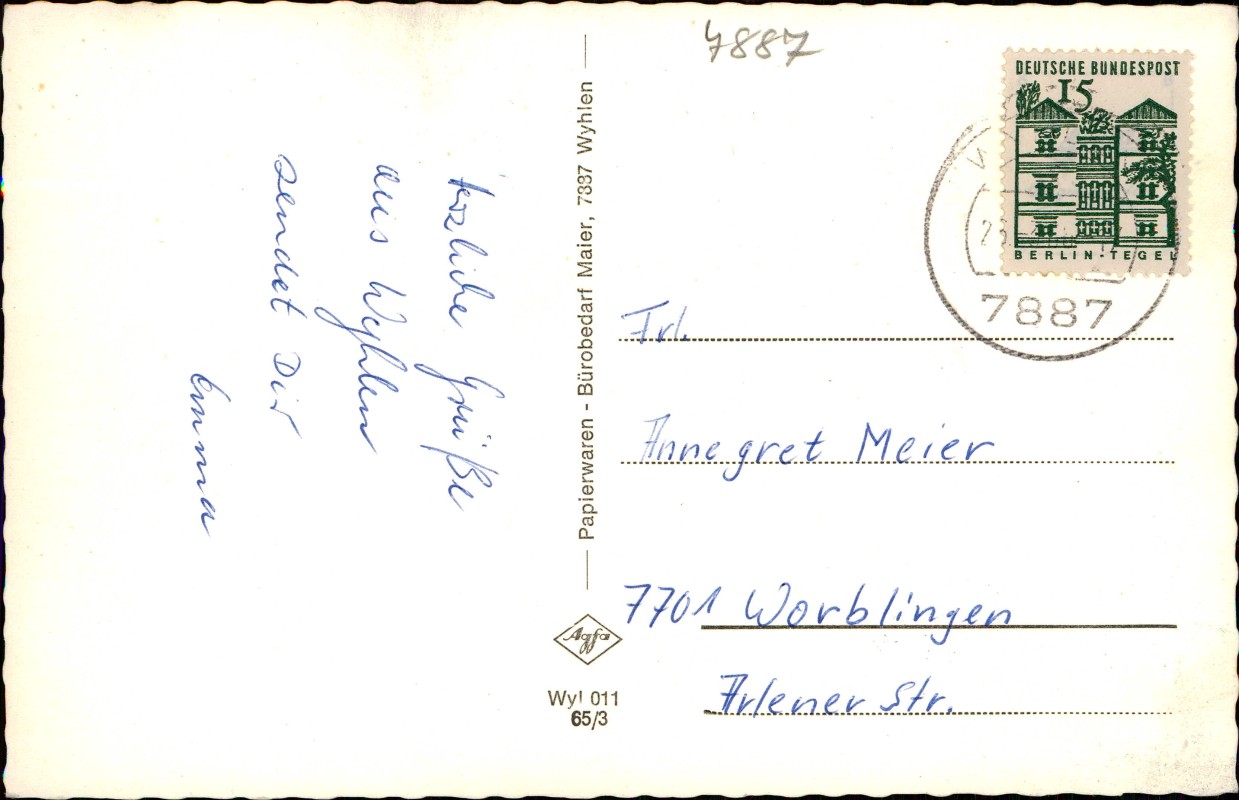 Herzliche Grüße
aus Wyhlen
sendet Dir
Emma
Papierwaren - Bürobedarf Maier, 7887 Wyhlen
Agfa
Wyl 011
65/3
7887
DEUTSCHE BUNDESPOST
15
BERLIN-TEGEL
7887
Frl.
Annegret Meier
7701 Worblingen
Arlener Str.